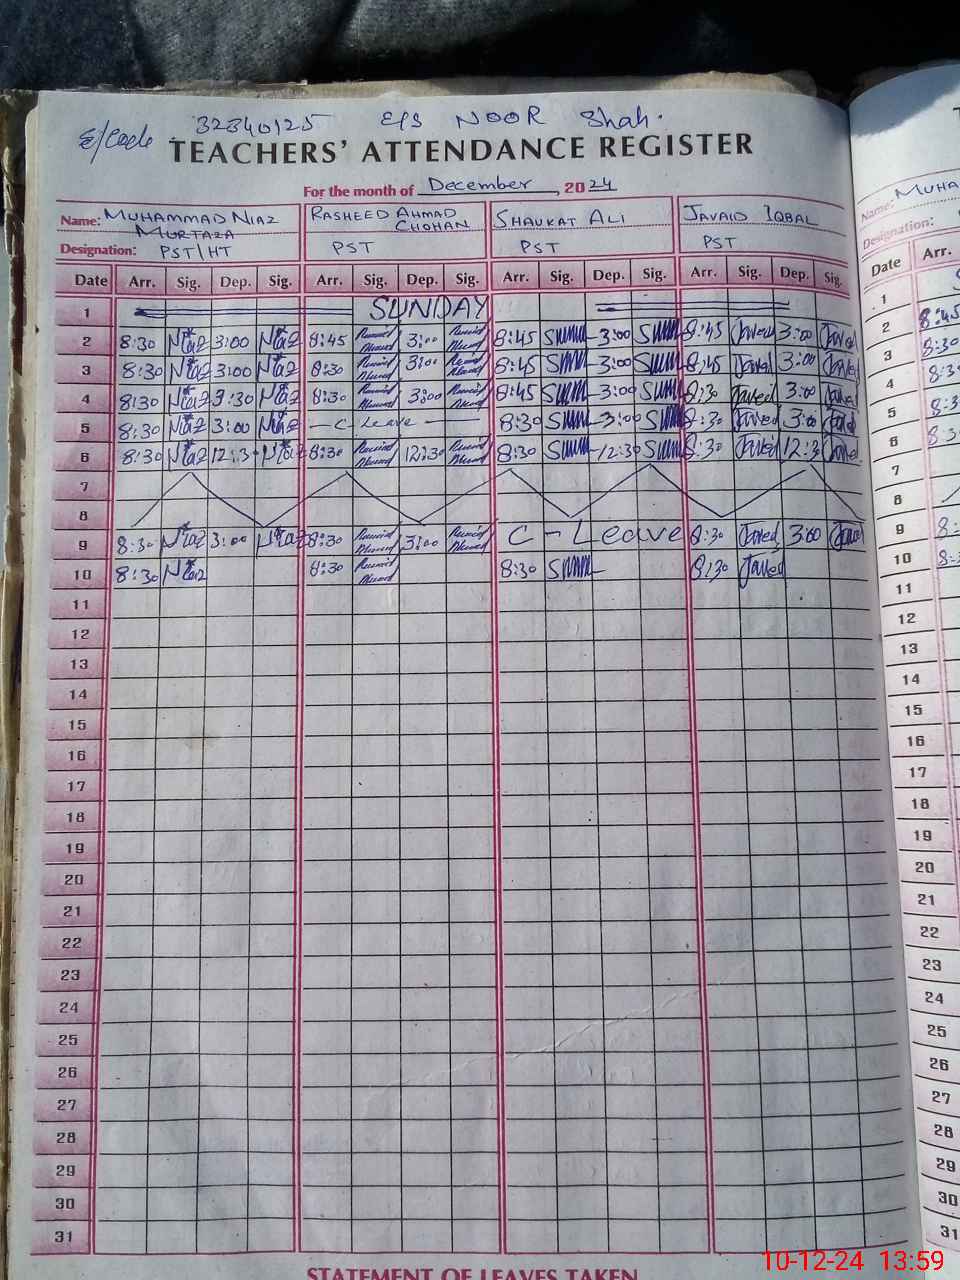 E/Code 32340125 E/S NOOR Shah.
TEACHERS' ATTENDANCE REGISTER
For the month of December, 2024
Name: MUHAMMAD NIAZ MURTAZA RASHEED AHMAD CHOHAN SHAUKAT ALI JAVAID IQBAL
Designation: PST/HT PST PST PST
Date Arr. Sig. Dep. Sig. Arr. Sig. Dep. Sig. Arr. Sig. Dep. Sig. Arr. Sig. Dep. Sig.
1 SUNDAY
2 8:30 Niaz 3:00 Niaz 8:45 3:00 8:45 3:00 8:45 Javed 3:00 Javed
3 8:30 Niaz 3:00 Niaz 8:30 3:00 8:45 3:00 8:45 Javed 3:00 Javed
4 8:30 Niaz 3:30 Niaz 8:30 3:00 8:45 3:00 8:30 Javed 3:00 Javed
5 8:30 Niaz 3:00 Niaz - C Leave - 8:30 3:00 8:30 Javed 3:00 Javed
6 8:30 Niaz 12:3 Niaz 8:30 12:30 8:30 12:30 8:30 Javed 12:3 Javed
7
8
9 8:30 Niaz 3:00 Niaz 8:30 3:00 C - Leave 8:30 Javed 3:00 Javed
10 8:30 Niaz 8:30 8:30 8:30 Javed
11
12
13
14
15
16
17
18
19
20
21
22
23
24
25
26
27
28
29
30
31
STATEMENT OF LEAVES TAKEN
Name: MUHA
Designation:
Date Arr.
1
2 8:45
3 8:30
4
5
6
7
8
9
10
11
12
13
14
15
16
17
18
19
20
21
22
23
24
25
26
27
28
29
30
31
10-12-24 13:59